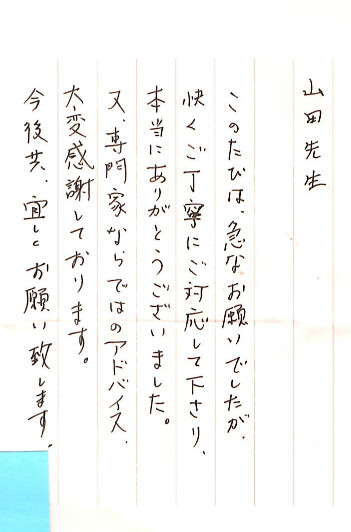 山田先生
このたびは、急なお願いでしたが、
快くご丁寧にご対応して下さり、
本当にありがとうございました。
又、専門家ならではのアドバイス、
大変感謝しております。
今後共、宜しくお願い致します。